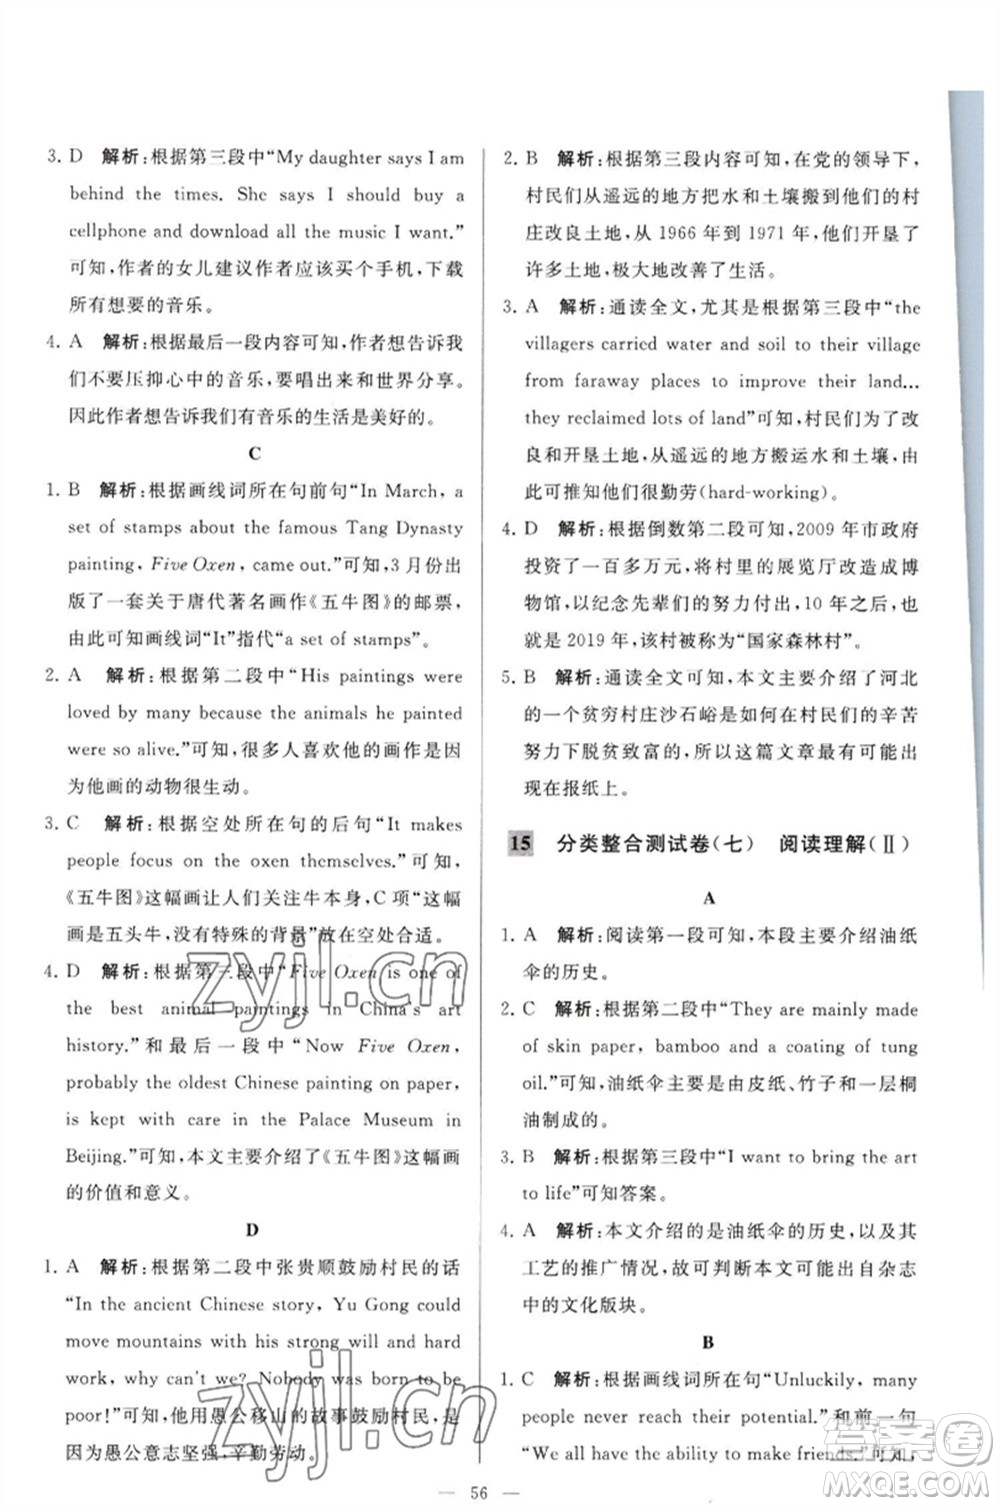 3. D 解析:根据第三段中“My daughter says I am
behind the times. She says I should buy a
cellphone and download all the music I want.”
可知,作者的女儿建议作者应该买个手机,下载
所有想要的音乐。
4. A 解析:根据最后一段内容可知,作者想告诉我
们不要压抑心中的音乐,要唱出来和世界分享。
因此作者想告诉我们有音乐的生活是美好的。
C
1. B 解析:根据画线词所在句前句“In March, a
set of stamps about the famous Tang Dynasty
painting, Five Oxen, came out.”可知,3 月份出
版了一套关于唐代著名画作《五牛图》的邮票,
由此可知画线词“It”指代“a set of stamps”。
2. A 解析:根据第二段中“His paintings were
loved by many because the animals he painted
were so alive.”可知,很多人喜欢他的画作是因
为他画的动物很生动。
3. C 解析:根据空处所在句的后句“It makes
people focus on the oxen themselves.”可知,
《五牛图》这幅画让人们关注牛本身,C 项“这幅
画是五头牛,没有特殊的背景”放在空处合适。
4. D 解析:根据第三段中“Five Oxen is one of
the best animal paintings in China's art
history.”和最后一段中“Now Five Oxen,
probably the oldest Chinese painting on paper,
is kept with care in the Palace Museum in
Beijing.”可知,本文主要介绍了《五牛图》这幅画
的价值和意义。
D
1. A 解析:根据第二段中张贵顺鼓励村民的话
“In the ancient Chinese story, Yu Gong could
move mountains with his strong will and hard
work, why can't we? Nobody was born to be
poor!”可知,他用愚公移山的故事鼓励村民,是
因为愚公意志坚强、辛勤劳动。
2. B 解析:根据第三段内容可知,在党的领导下,
村民们从遥远的地方把水和土壤搬到他们的村
庄改良土地,从 1966 年到 1971 年,他们开垦了
许多土地,极大地改善了生活。
3. A 解析:通读全文,尤其是根据第三段中“the
villagers carried water and soil to their village
from faraway places to improve their land...
they reclaimed lots of land”可知,村民们为了改
良和开垦土地,从遥远的地方搬运水和土壤,由
此可推知他们很勤劳(hard-working)。
4. D 解析:根据倒数第二段可知,2009 年市政府
投资了一百多万元,将村里的展览厅改造成博
物馆,以纪念先辈们的努力付出,10 年之后,也
就是 2019 年,该村被称为“国家森林村”。
5. B 解析:阅读全文可知,本文主要介绍了河北
的一个贫穷村庄沙石峪是如何在村民们的辛苦
努力下脱贫致富的,所以这篇文章最有可能出
现在报纸上。
15 分类整合测试卷(七) 阅读理解(Ⅱ)
A
1. A 解析:阅读第一段可知,本段主要介绍油纸
伞的历史。
2. C 解析:根据第二段中“They are mainly made
of skin paper, bamboo and a coating of tung
oil.”可知,油纸伞主要是由皮纸、竹子和一层桐
油制成的。
3. B 解析:根据第三段中“I want to bring the art
to life”可知答案。
4. A 解析:本文介绍的是油纸伞的历史,以及其
工艺的推广情况,故可判断本文可能来自杂志
中的文化版块。
B
1. C 解析:根据画线词所在句“Unluckily, many
people never reach their potential.”和前一句
“We all have the ability to make friends.”可知,
56
zyjl.cn
zyjl.cn
答案圈
MXQE.COM